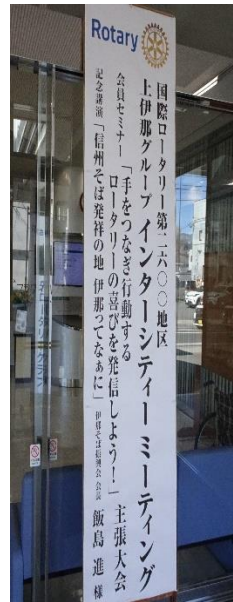 Rotary
国際ロータリー第二六〇〇地区
上伊那グループ インターシティーミーティング
会員セミナー「手をつなぎ行動する
ロータリーの喜びを発信しよう!」主張大会
記念講演「信州そば発祥の地 伊那ってなぁに」伊那そば振興会 会長 飯島 進 様